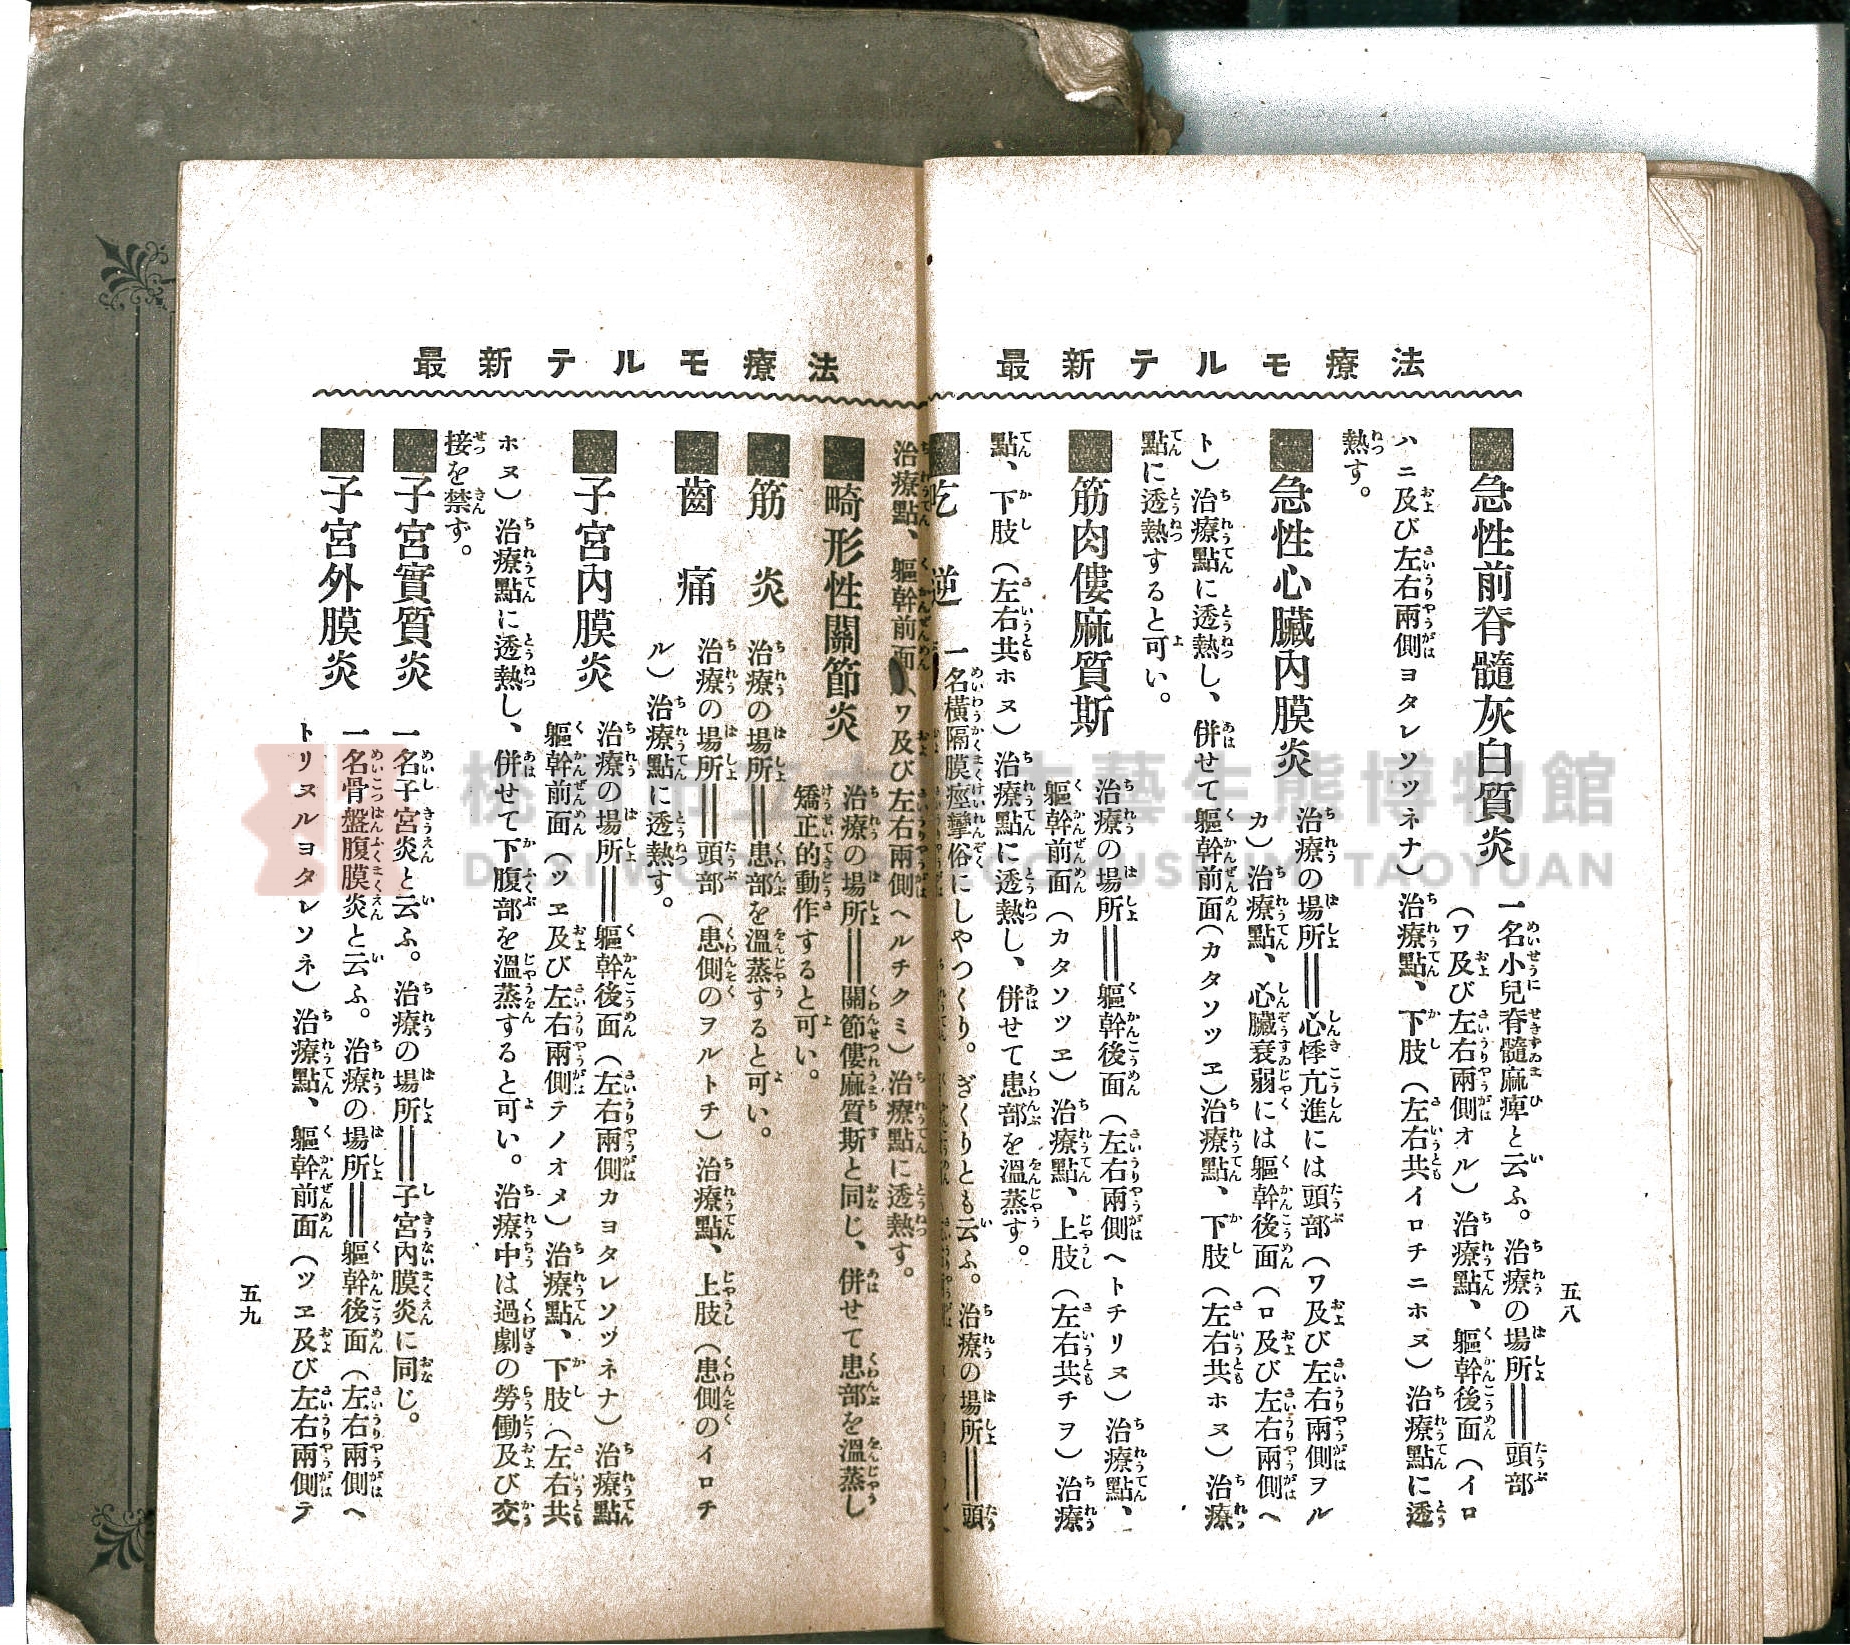 最新テルモ療法
■急性前脊髓灰白質炎
一名小兒脊髓麻痺と云ふ。治療の場所＝頭部
（ワ及び左右兩側オル）治療點、軀幹後面（イロ
ハニ及び左右兩側ヨタレソツネナ）治療點、下肢（左右共イロチニホヌ）治療點に透
熱す。
■急性心臟內膜炎
治療の場所＝心悸亢進には頭部（ワ及び左右兩側ヲル
カ）治療點、心臟衰弱には軀幹後面（ロ及び左右兩側ヘ
ト）治療點に透熱し、併せて軀幹前面（カタソツヱ）治療點、下肢（左右共ホヌ）治療
點に透熱すると可い。
■筋肉僂麻質斯
治療の場所＝軀幹後面（左右兩側ヘトチリヌ）治療點、
軀幹前面（カタソツヱ）治療點、上肢（左右共チヲ）治療
點、下肢（左右共ホヌ）治療點に透熱し、併せて患部を溫蒸す。
■吃逆
一名橫隔膜痙攣俗にしやつくり。ぎくりとも云ふ。治療の場所＝頭
五八
最新テルモ療法
治療點、軀幹前面ワ及び左右兩側ヘルチクミ）治療點に透熱す。
■畸形性關節炎
治療の場所＝關節僂麻質斯と同じ、併せて患部を溫蒸し
矯正的動作すると可い。
■筋炎
治療の場所＝患部を溫蒸すると可い。
■齒痛
治療の場所＝頭部（患側のヲルトチ）治療點、上肢（患側のイロチ
ル）治療點に透熱す。
■子宮內膜炎
治療の場所＝軀幹後面（左右兩側カヨタレソヅネナ）治療點
軀幹前面（ツヱ及び左右兩側テノオメ）治療點、下肢（左右共
ホヌ）治療點に透熱し、併せて下腹部を溫蒸すると可い。治療中は過劇の勞働及び交
接を禁ず。
■子宮實質炎
一名子宮炎と云ふ。治療の場所＝子宮內膜炎に同じ。
■子宮外膜炎
一名骨盤腹膜炎と云ふ。治療の場所＝軀幹後面（左右兩側ヘ
トリヌルヨタレソネ）治療點、軀幹前面（ツヱ及び左右兩側テ
五九
DAXI WOOD ART ECOMUSEUM, TAOYUAN